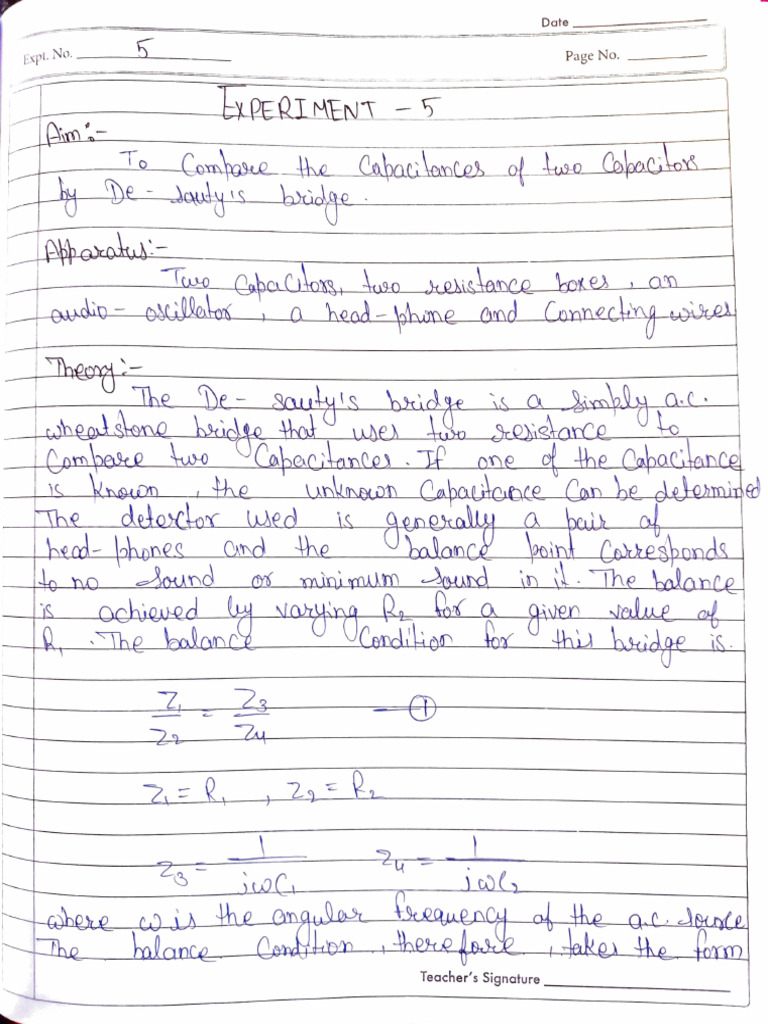 Date
Expt. No. 5
Page No.
EXPERIMENT - 5
Aim:-
To Compare the Capacitances of two Capacitors
by De-sauty's bridge.
Apparatus:-
Two Capacitors, two resistance boxes, an
audio-oscillator, a head-phone and Connecting wires
Theory:-
The De-sauty's bridge is a simply a.c.
wheatstone bridge that uses two resistance to
Compare two Capacitances. If one of the Capacitance
is known, the unknown Capacitance Can be determined
The detector used is generally a pair of
head-phones and the balance point Corresponds
to no sound or minimum sound in it. The balance
is achieved by varying R₂ for a given value of
R₁. The balance Condition for this bridge is.
Z₁/Z₂ = Z₃/Z₄ — ①
Z₁ = R₁, Z₂ = R₂
Z₃ = 1/jωC₁ Z₄ = 1/jωC₂
where ω is the angular frequency of the a.c. source
The balance Condition, therefore, takes the form
Teacher's Signature